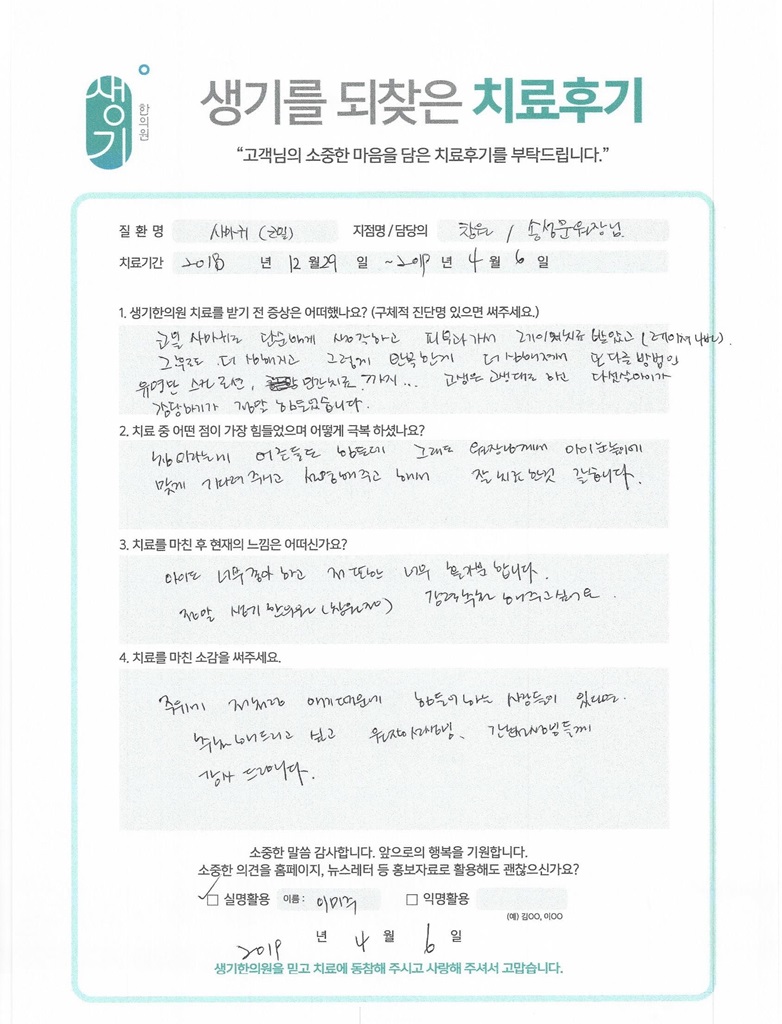 생기
한의원
생기를 되찾은 치료후기
“고객님의 소중한 마음을 담은 치료후기를 부탁드립니다.”
질 환 명 사마귀 (군밀) 지점명 / 담당의 창원 / 송성문원장님
치료기간 2018 년 12 월 29 일 ~ 2019 년 4 월 6 일
1. 생기한의원 치료를 받기 전 증상은 어떠했나요? (구체적 진단명 있으면 써주세요.)
사마귀로 단순하게 생각하고 피부과가서 레이저치료 받았고
그 후로 더 심해지고 그렇게 반복한게 더 심해져서 또 다른 방법인
유명한 민간치료 까지... 고생은 고생대로 하고 다섯살아이가
감당하기가 정말 힘들었습니다.
2. 치료 중 어떤 점이 가장 힘들었으며 어떻게 극복 하셨나요?
어른들도 힘든데 그래도 원장님께서 아이눈높이에
맞게 기다려 주시고 설명해주고 해서 잘 치료 한것 같습니다.
3. 치료를 마친 후 현재의 느낌은 어떠신가요?
아이도 너무 좋아 하고 저 또한 너무 홀가분 합니다.
정말 생기 한의원 (창원점) 강력추천 해주고 싶어요
4. 치료를 마친 소감을 써주세요.
주위에 저처럼 애기때문에 힘들어하는 사람들이 있다면
추천해드리고 싶고 원장선생님, 간호사선생님들께
감사 드립니다.
소중한 말씀 감사합니다. 앞으로의 행복을 기원합니다.
소중한 의견을 홈페이지, 뉴스레터 등 홍보자료로 활용해도 괜찮으신가요?
실명활용 이름 : 이미주 익명활용
(예) 김OO, 이OO
2019 년 4 월 6 일
생기한의원을 믿고 치료에 동참해 주시고 사랑해 주셔서 고맙습니다.